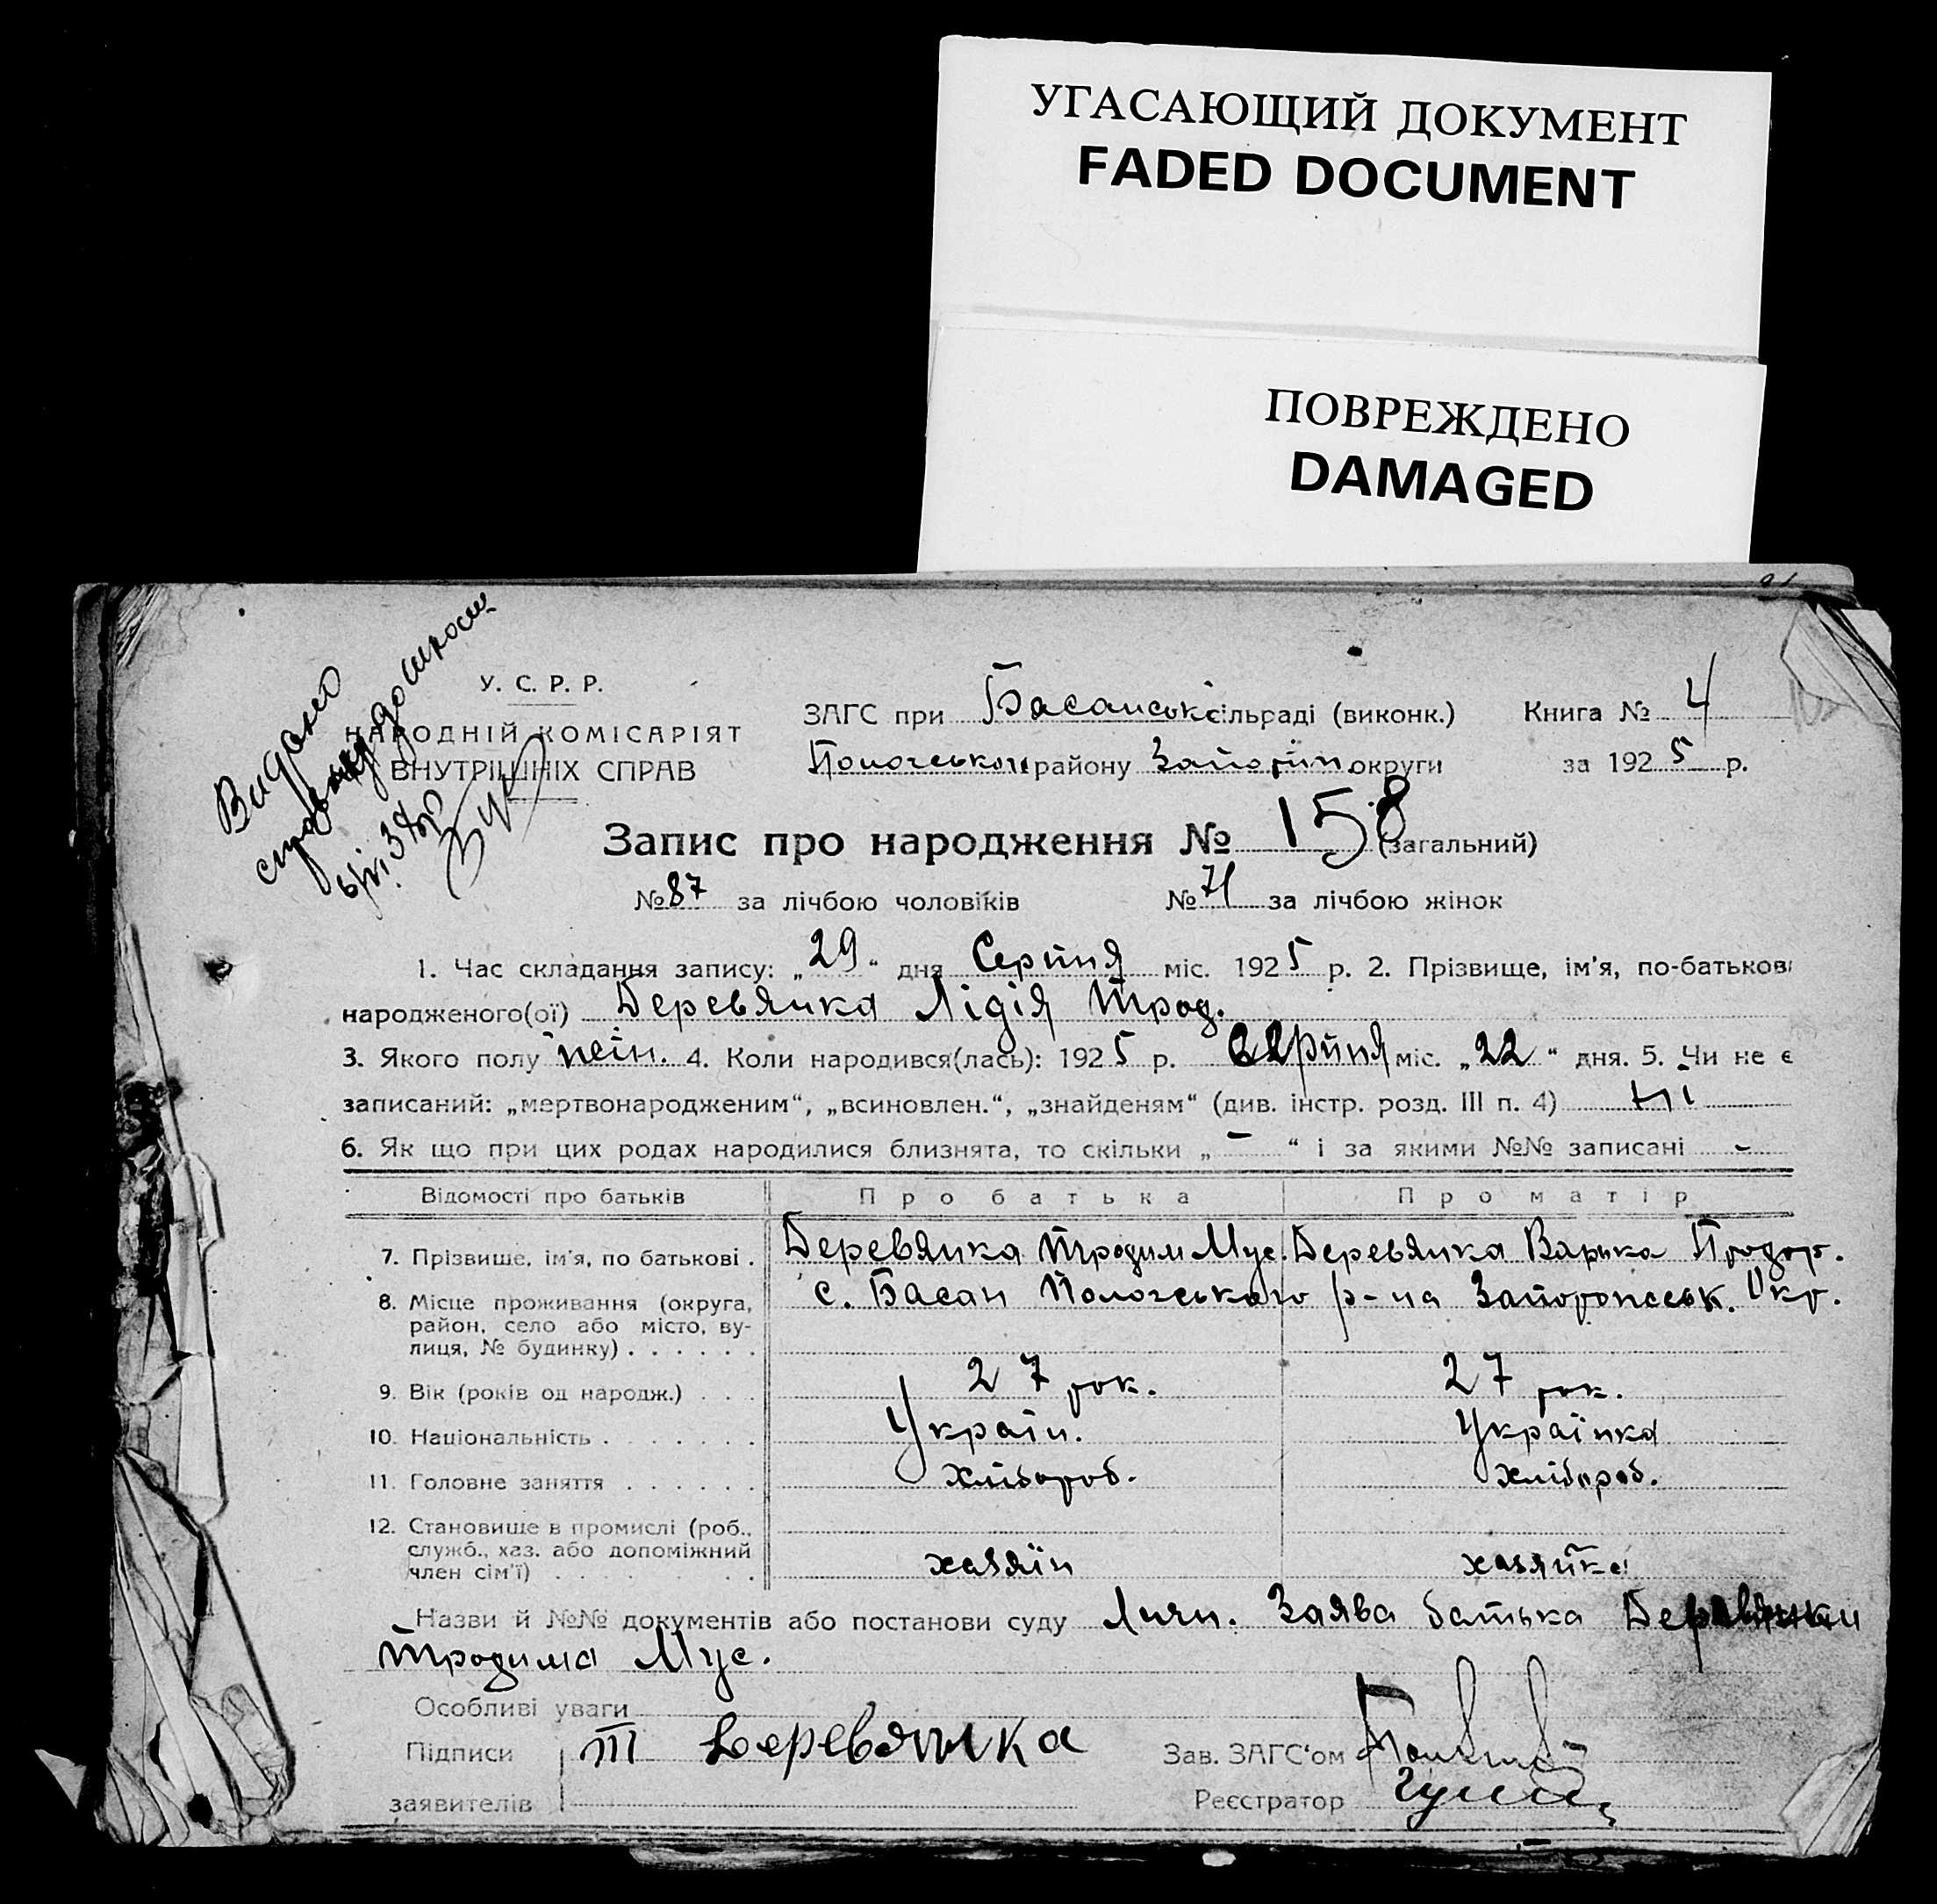 УГАСАЮЩИЙ ДОКУМЕНТ
FADED DOCUMENT
ПОВРЕЖДЕНО
DAMAGED
Видано
У. С. Р. Р.
НАРОДНІЙ КОМІСАРІЯТ
ВНУТРІШНІХ СПРАВ
ЗАГС при Басанській сільраді (виконк.) Книга № 4
Пологського району Запоріж. округи за 1925 р.
Запис про народження № 158 (загальний)
№ 87 за лічбою чоловіків № 71 за лічбою жінок
1. Час складання запису: „29“ дня Серпня міс. 1925 р. 2. Прізвище, ім'я, по-батькові
народженого(ої) Деревянка Лідія Трод.
3. Якого полу 4. Коли народився(лась): 1925 р. серпня міс. „22“ дня. 5. Чи не є
записаний: „мертвонародженим“, „всиновлен.“, „знайденям“ (див. інстр. розд. III п. 4) ні
6. Як що при цих родах народилися близнята, то скільки „ — “ і за якими №№ записані -
Відомості про батьків Про батька Про матір
7. Прізвище, ім'я, по батькові . Деревянка Тродим Мус. Деревянка Варька
8. Місце проживання (округа, с. Басан Пологського р-на Запорожськ. Окр.
район, село або місто, ву-
лиця, № будинку) . . . . . .
9. Вік (років од народж.) . . 27 рок. 27 рок.
10. Національність . . . . . . . Україн. Українка
11. Головне заняття . . . . . . хлібороб. хлібороб.
12. Становище в промислі (роб.,
служб., хаз. або допоміжний
член сім'ї) . . . . . . . . хазяїн хазяйка
Назви й №№ документів або постанови суду Личн. Заява батька Деревянки
Тродима Мус.
Особливі уваги
Підписи Т Деревянка Зав. ЗАГС'ом
заявителів Реєстратор